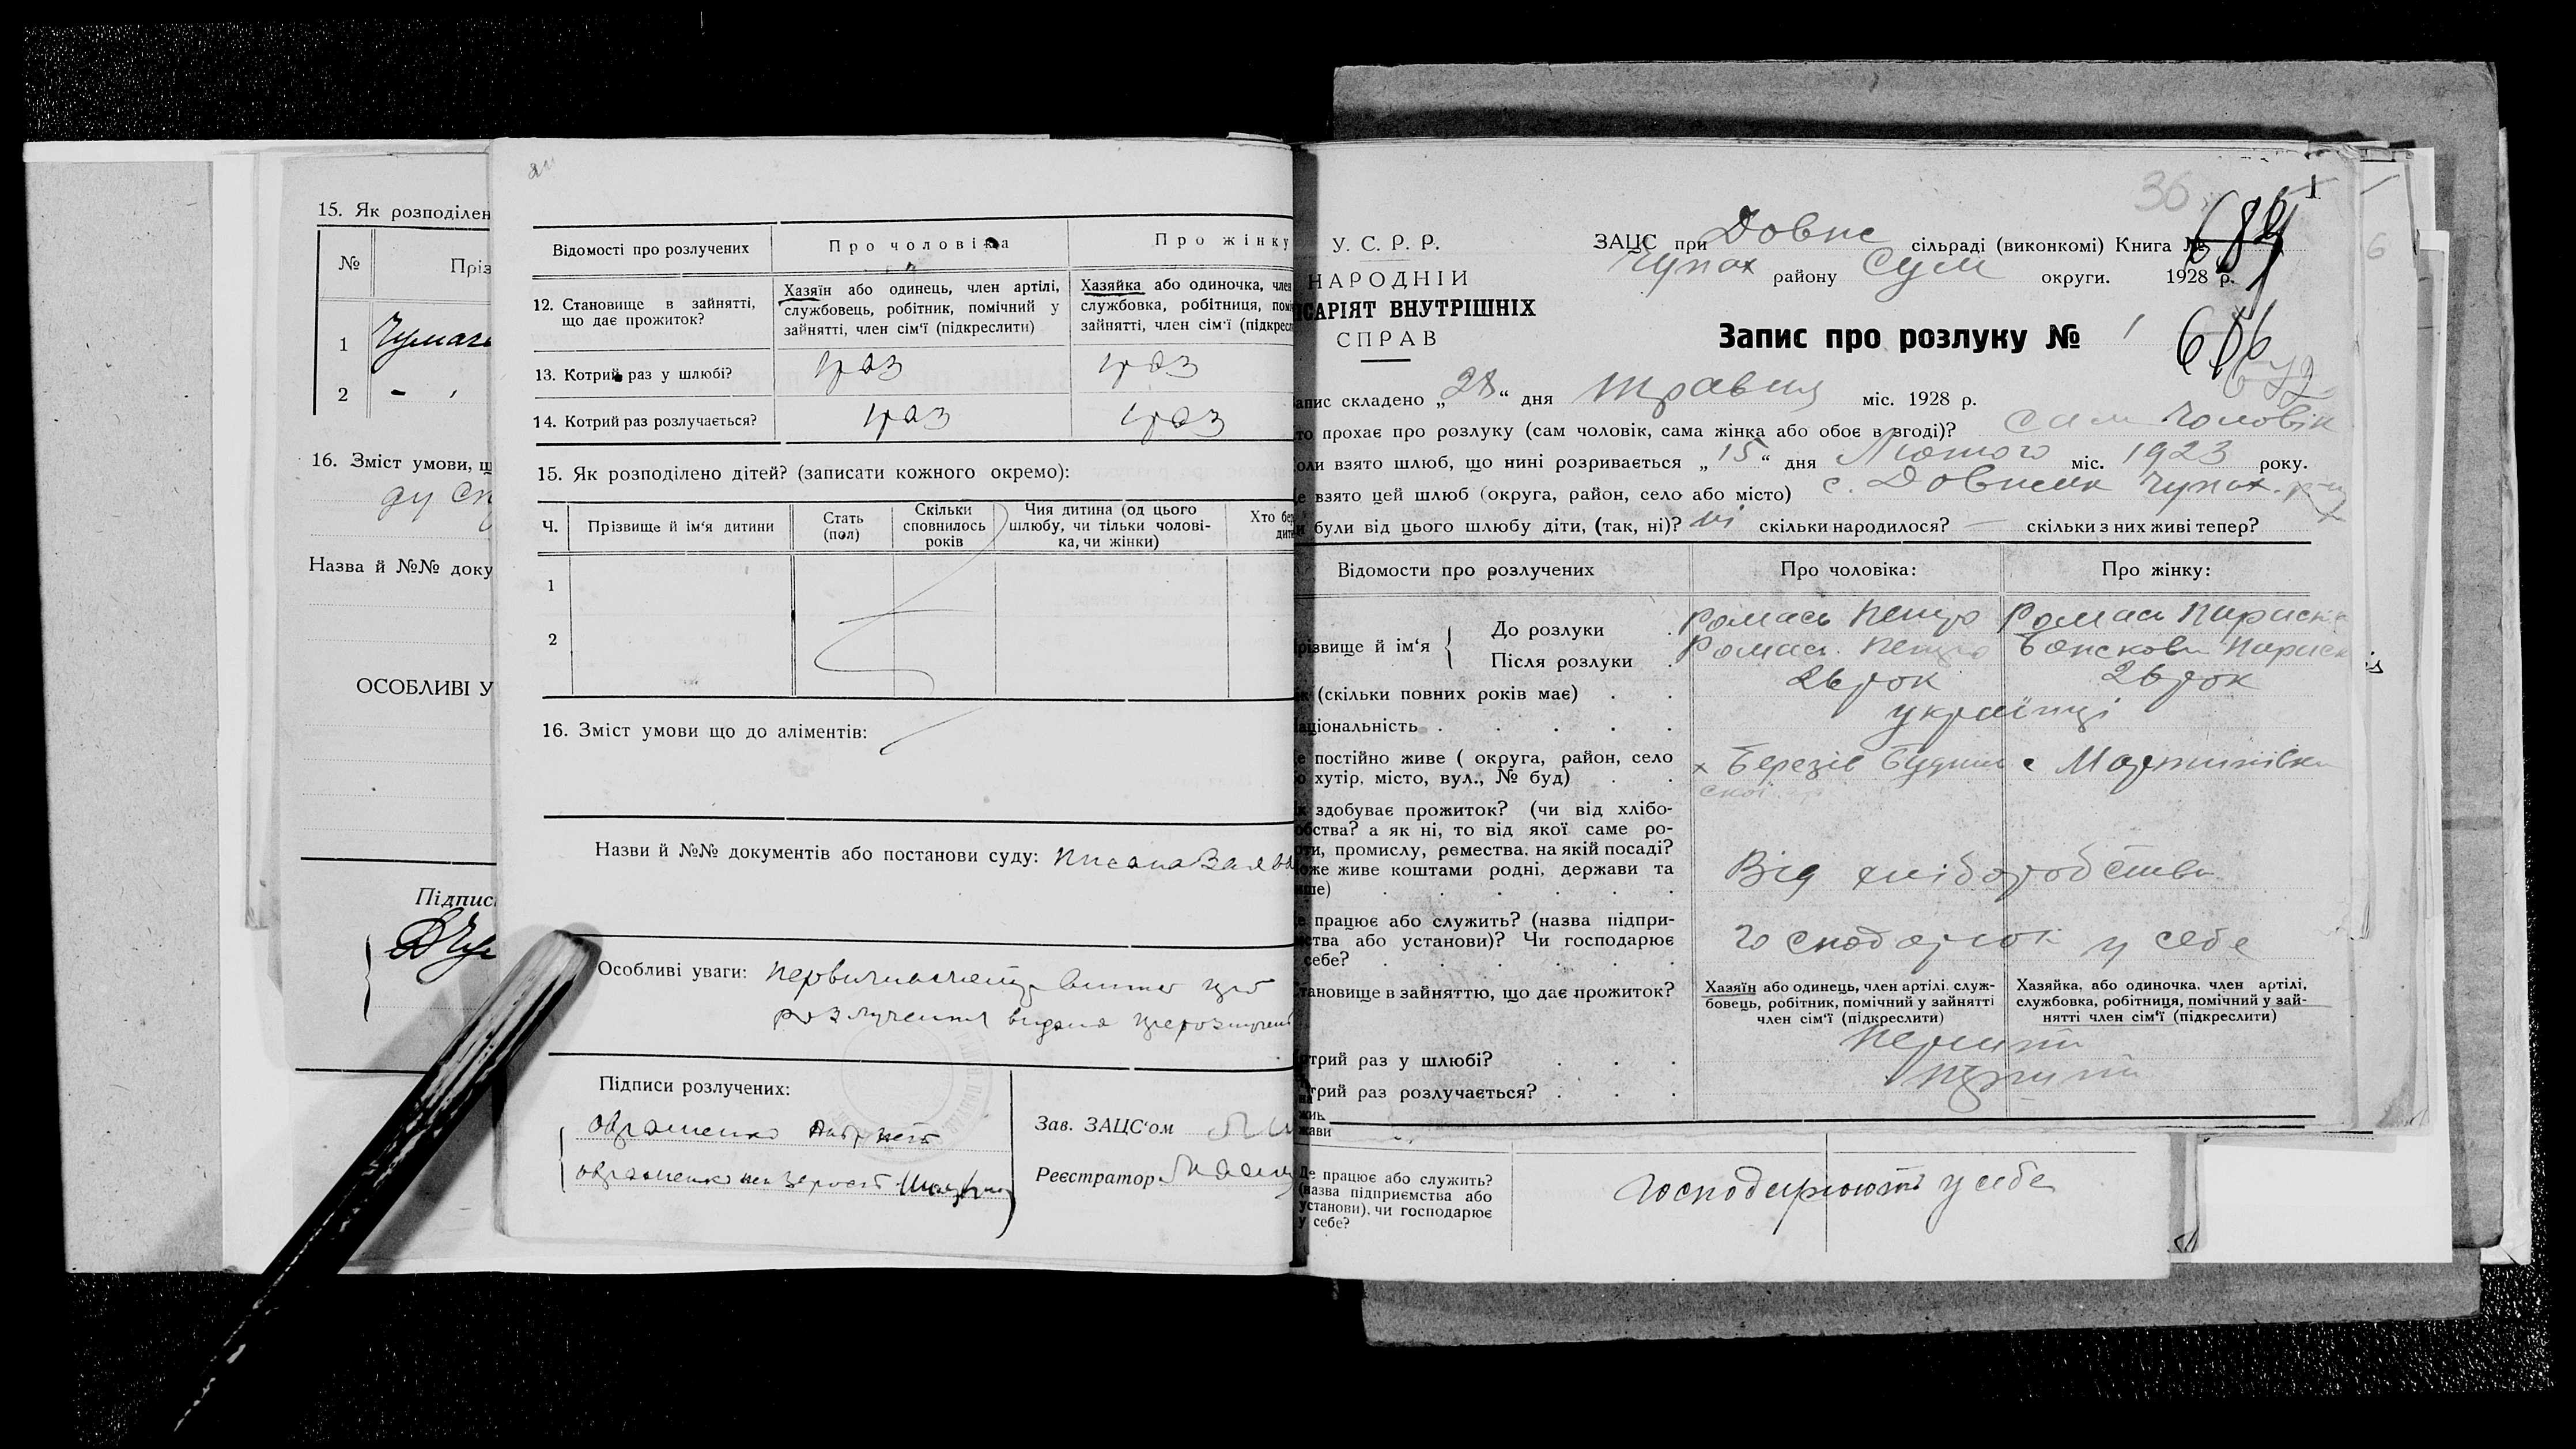 15. Як розподілен
№ Пріз
1
2
16. Зміст умови, щ
Назва й №№ доку
ОСОБЛИВІ У
Підпис
Відомості про розлучених
Про чоловіка
Про жінку
12. Становище в зайнятті,
що дає прожиток?
Хазяїн або одинець, член артілі,
службовець, робітник, помічний у
зайнятті, член сім'ї (підкреслити)
Хазяйка або одиночка, член
службовка, робітниця, помі
зайнятті, член сім'ї (підкресл
13. Котрий раз у шлюбі?
1 раз
1 раз
14. Котрий раз розлучається?
1 раз
1 раз
15. Як розподілено дітей? (записати кожного окремо):
Ч.
Прізвище й ім'я дитини
Стать
(пол)
Скільки
сповнилось
років
Чия дитина (од цього
шлюбу, чи тільки чолові-
ка, чи жінки)
Хто бер
дити
1
2
16. Зміст умови що до аліментів:
Назви й №№ документів або постанови суду:
Особливі уваги:
Підписи розлучених:
Зав. ЗАЦС'ом
Реєстратор
36
1
У. С. Р. Р.
НАРОДНІЙ
ІСАРІЯТ ВНУТРІШНІХ
СПРАВ
ЗАЦС при Довж сільраді (виконкомі) Книга №
Чупах району Сум округи. 1928 р.
Запис про розлуку № 1
апис складено „28“ дня травня міс. 1928 р.
то прохає про розлуку (сам чоловік, сама жінка або обоє в згоді)? сам чоловік
оли взято шлюб, що нині розривається „15“ дня Лютого міс. 1923 року.
е взято цей шлюб (округа, район, село або місто) с. Довжик Чупах. р-н
и були від цього шлюбу діти, (так, ні)? ні скільки народилося? — скільки з них живі тепер?
Відомости про розлучених
Про чоловіка:
Про жінку:
різвище й ім'я
До розлуки
Ромась Петро
Ромась Параск
Після розлуки
Ромась Петро
Параск
к (скільки повних років має)
26 рок
26 рок
аціональність
українці
е постійно живе ( округа, район, село
о хутір, місто, вул., № буд)
с Мартинівка
к здобуває прожиток? (чи від хлібо-
обства? а як ні, то від якої саме ро-
оти, промислу, ремества, на якій посаді?
оже живе коштами родні, держави та
нше)
Від хліборобства
е працює або служить? (назва підпри-
мства або установи)? Чи господарює
себе?
Господарюють у себе
тановище в зайняттю, що дає прожиток?
Хазяїн або одинець, член артілі, служ-
бовець, робітник, помічний у зайнятті
член сім'ї (підкреслити)
Хазяйка, або одиночка, член артілі,
службовка, робітниця, помічний у зай-
нятті член сім'ї (підкреслити)
отрий раз у шлюбі?
перший
трий раз розлучається?
перший
Де працює або служить?
(назва підприємства або
установи), чи господарює
у себе?
Господарюють у себе